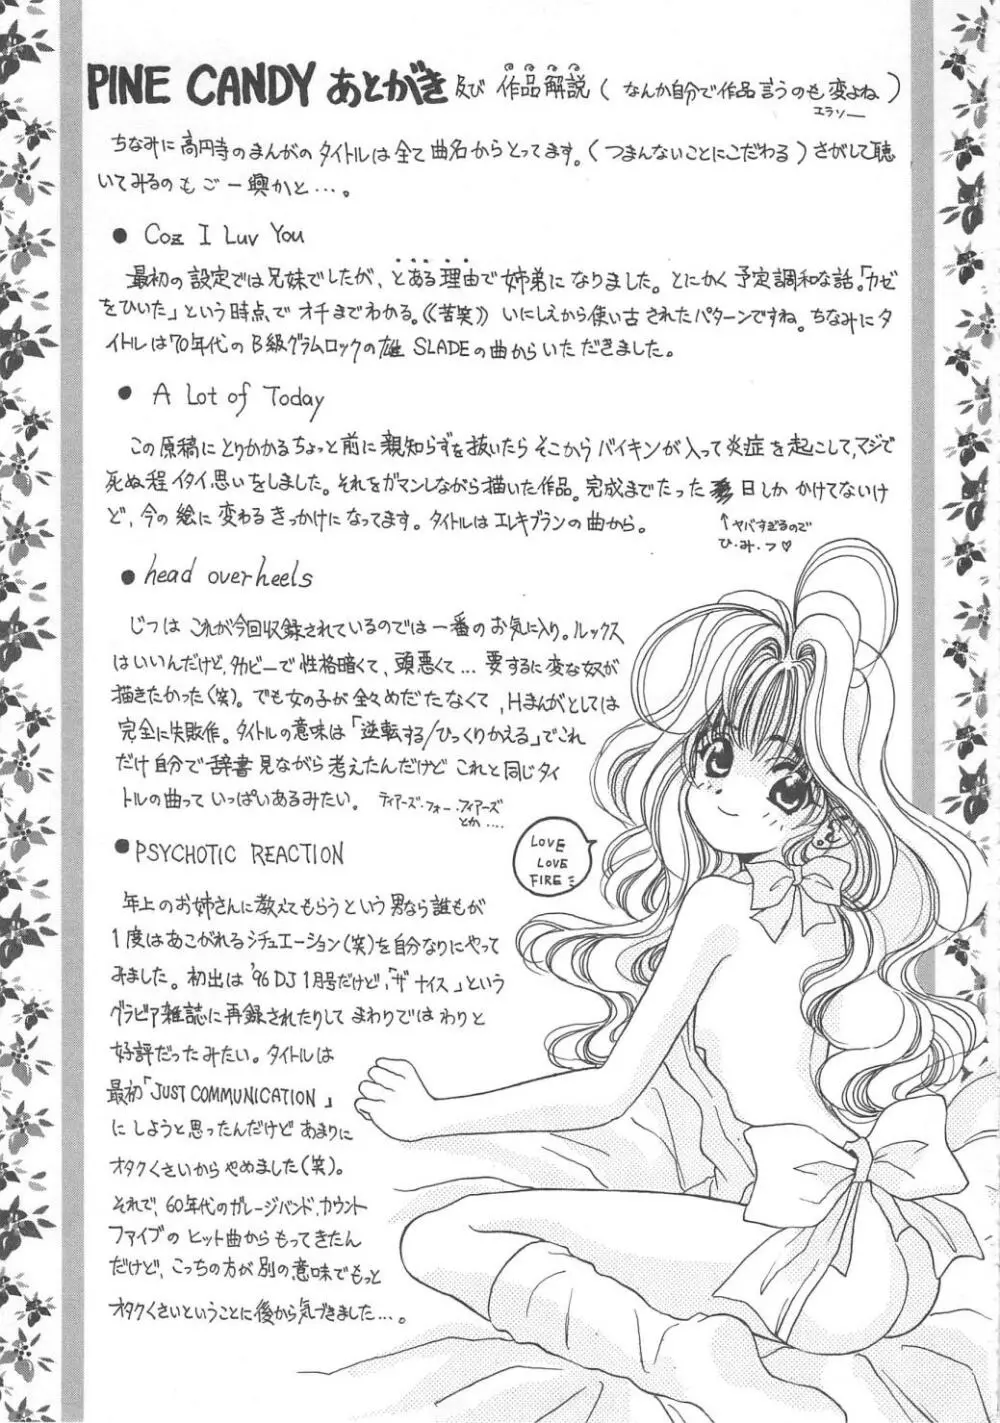 PINE CANDY あとがき 及び 作品解説 (なんか自分で作品言うのも変よね)
エラソー
ちなみに高円寺のまんがのタイトルは全て曲名からとってます。(つまんないことにこだわる) さがして聴
いてみるのもご一興かと…。
● Coz I Luv You
最初の設定では兄妹でしたが、とある理由で姉弟になりました。とにかく予定調和な話。「カゼ
をひいた」という時点でオチまでわかる。《苦笑》 いにしえから使い古されたパターンですね。ちなみにタ
イトルは70年代のB級グラムロックの雄 SLADEの曲からいただきました。
● A Lot of Today
この原稿にとりかかるちょっと前に親知らずを抜いたらそこからバイキンが入って炎症を起こして、マジで
死ぬ程イタイ思いをしました。それをガマンしながら描いた作品。完成までたった 日しかかけてないけ
ど、今の絵に変わるきっかけになってます。タイトルはエレキブランの曲から。
↑ヤバすぎるので
ひ・み・つ♡
● head over heels
じつはこれが今回収録されているのでは一番のお気に入り。ルックス
はいいんだけど、タカビーで性格暗くて、頭悪くて…要するに変な奴が
描きたかった(笑)。でも女の子が全々めだたなくて、Hまんがとしては
完全に失敗作。タイトルの意味は「逆転する/ひっくりかえる」でこれ
だけ自分で辞書見ながら考えたんだけどこれと同じタイ
トルの曲っていっぱいあるみたい。ティアーズ・フォー・フィアーズ
とか....
● PSYCHOTIC REACTION
年上のお姉さんに教えてもらうという男なら誰もが
1度はあこがれるシチュエーション(笑)を自分なりにやって
みました。初出は'96 DJ 1月号だけど、「ザ ナイス」という
グラビア雑誌に再録されたりしてまわりではわりと
好評だったみたい。タイトルは
最初「JUST COMMUNICATION」
にしようと思ったんだけどあまりに
オタクくさいからやめました(笑)。
それで、60年代のガレージバンド、カウント
ファイブのヒット曲からもってきたん
だけど、こっちの方が別の意味でもっと
オタクくさいということに後から気づきました…。
LOVE
LOVE
FIRE